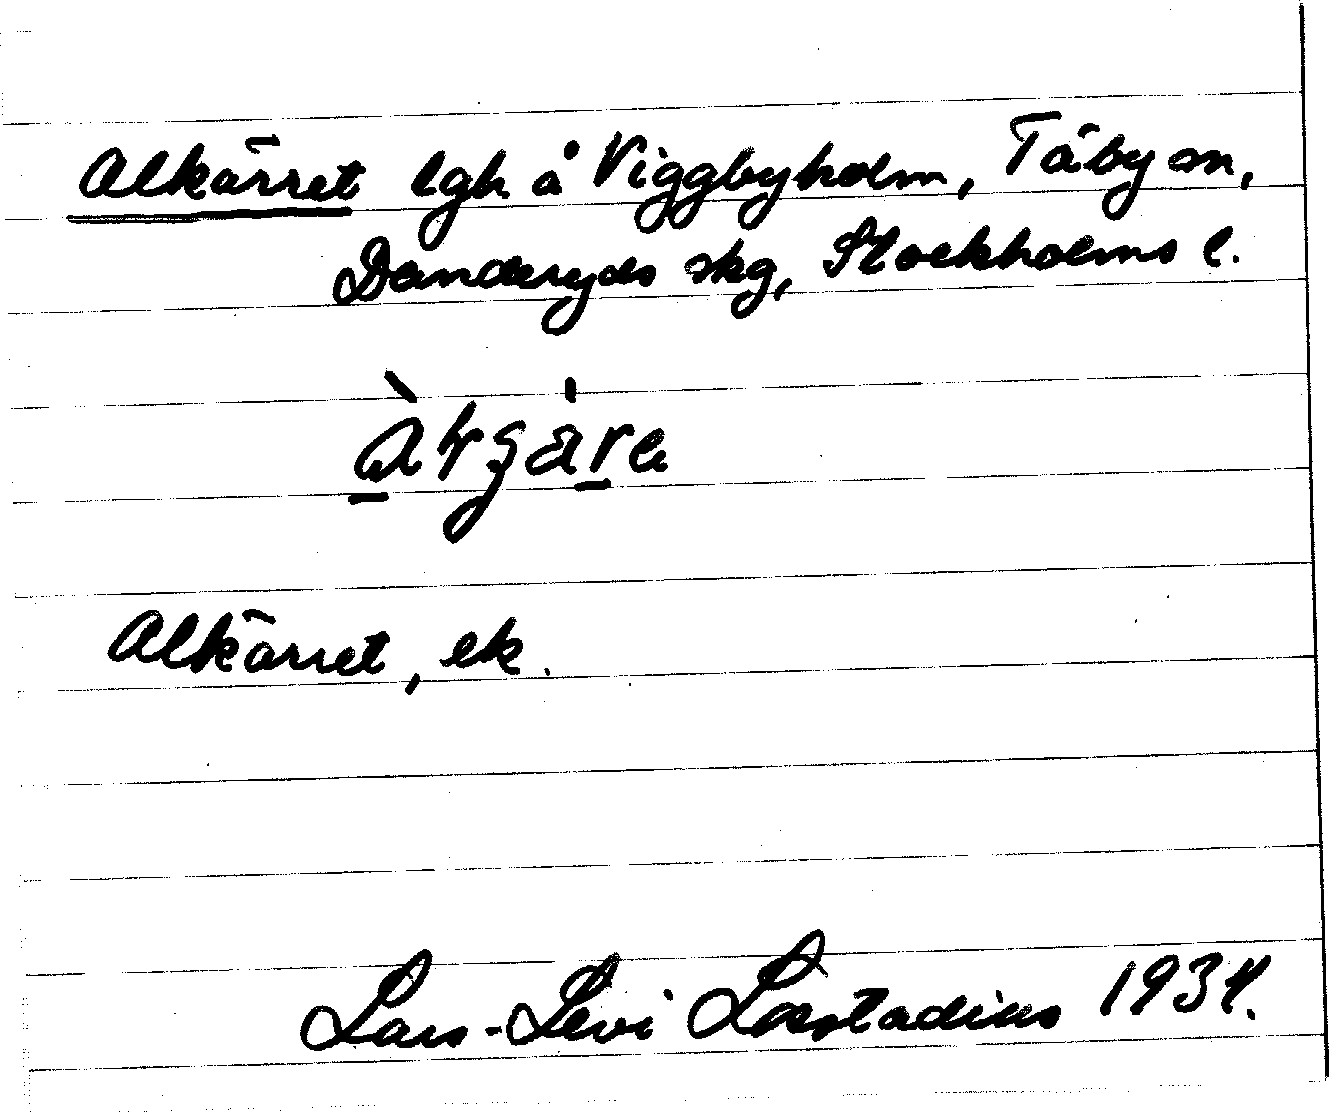 Alkärret lgh å Viggbyholm, Täby sn,
Danderyds skg, Stockholms l.
Alkärret, ek.
Lars-Levi Læstadius 1934.